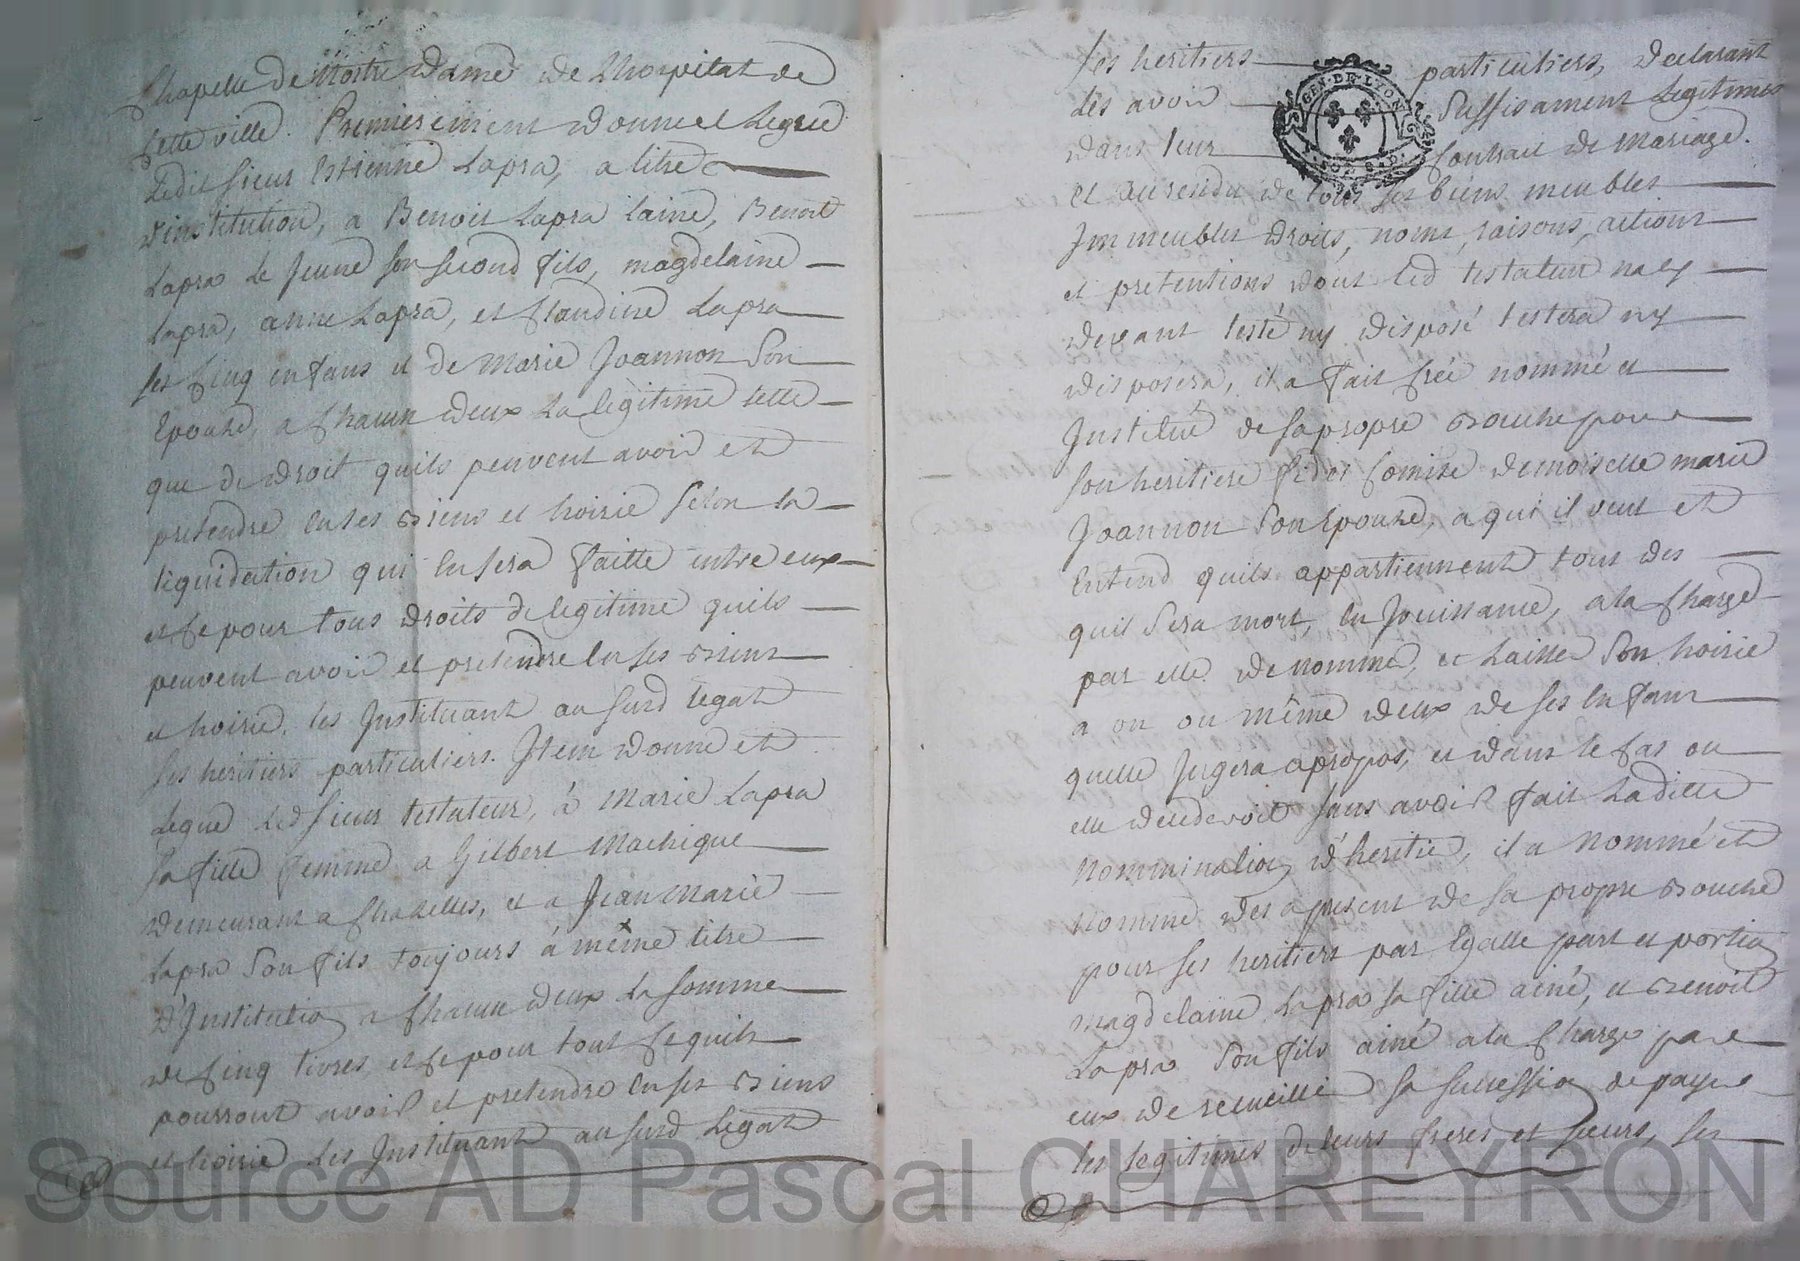 Chapelle de Nostre Dame de Lhospital de
Cette ville. Premierement donne et Legue
Ledit sieur Estienne Lapra, a titre
d'institution, a Benoit Lapra laine, Benoit
Lapra le Jeune son second fils, magdelaine
Lapra, anne Lapra, et Claudine Lapra
ses Cinq enfans et de Marie Joannon Son
Epouze, a Chacun deux La legitime telle
que de droit quils peuvent avoir et
pretendre en ses Biens et hoirie selon la
liquidation qui en sera faitte entre eux
et Ce pour tous droits de legitime quils
peuvent avoir et pretendre en ses Biens
et hoirie, les Instituant au surd legat
ses heritiers particuliers. Item donne et
Legue led sieur testateur, à Marie Lapra
sa fille femme a Gilbert Machique
demeurant a Chazelles, et a Jean Marie
Lapra Son fils toujours à même titre
d'Institution a Chacun deux La somme
de Cinq livres, et Ce pour tout Ce quils
pourront avoir et pretendre en ses Biens
et hoirie Les Instituant au surd Legat
ses heritiers particuliers, declarant
les avoir Suffisament Legitimes
dans leur Contrat de Mariage.
GEN·DE·LYON
Et au rendu de tous ses biens meubles
Immeubles droits, noms, raisons, actions
et pretentions dont led testateur na cy
devant testé ny disposé testera ny
disposera, il a fait Créé nommé et
Institué de sa propre Bouche pour
son heritiere fidei Comise demoiselle marie
Joannon Son Epouze, a qui il veut et
Entend quils appartiennent tous des
quil Sera mort, en Jouissance, a la Charge
par elle de nommer, et Laisser Son hoirie
a un ou même deux de ses Enfans
quelle Jugera apropos, et dans le Cas ou
elle decederoit sans avoir fait Laditte
Nomminatio d'heritier, il a Nommé et
Nomme des apresent de sa propre Bouche
pour ses heritiers par Egalle part et portio
magdelaine Lapra sa fille ainé, et Benoit
Lapra Son fils ainé a la Charge par
eux de recueillir sa successio de payer
les legitimes de leurs freres et sœurs, ses
Source AD Pascal CHAREYRON